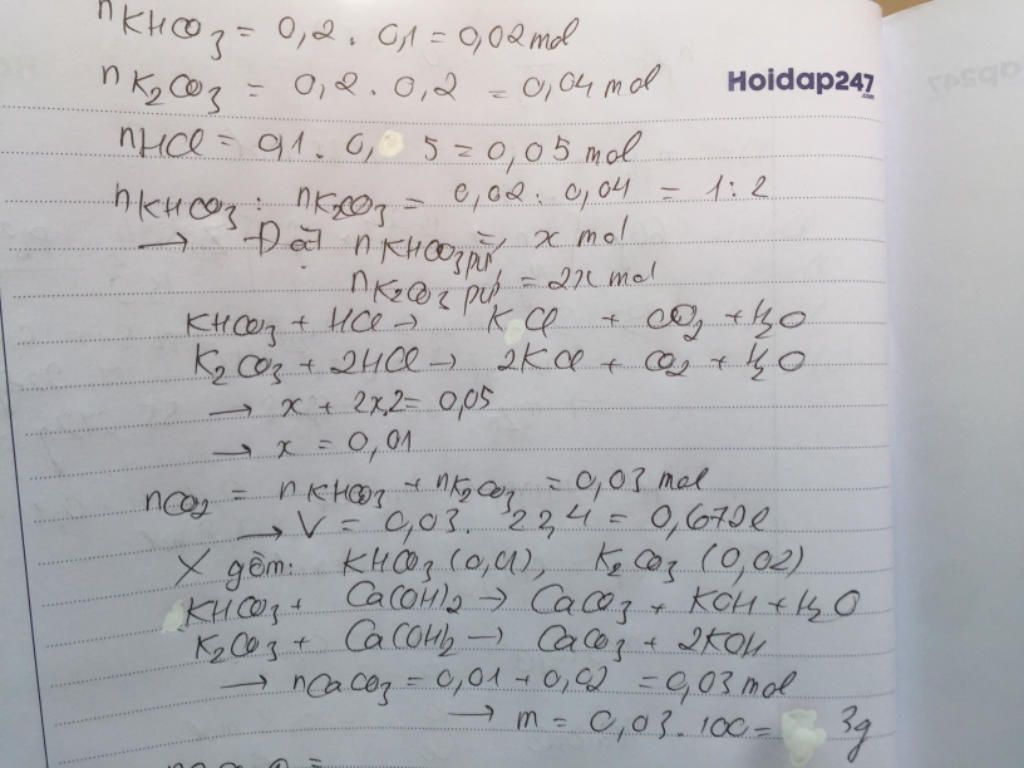 nKHCO3 = 0,2 . 0,1 = 0,02 mol
nK2CO3 = 0,2 . 0,2 = 0,04 mol
Hoidap247
.com
nHCl = 0,1 . 0, 5 = 0,05 mol
nKHCO3 : nK2CO3 = 0,02 : 0,04 = 1 : 2
→ Đặt nKHCO3 pứ = x mol
nK2CO3 pứ = 2x mol
KHCO3 + HCl → KCl + CO2 + H2O
K2CO3 + 2HCl → 2KCl + CO2 + H2O
→ x + 2x.2 = 0,05
→ x = 0,01
nCO2 = nKHCO3 + nK2CO3 = 0,03 mol
→ V = 0,03 . 22,4 = 0,672l
X gồm: KHCO3 (0,01), K2CO3 (0,02)
KHCO3 + Ca(OH)2 → CaCO3 + KOH + H2O
K2CO3 + Ca(OH)2 → CaCO3 + 2KOH
→ nCaCO3 = 0,01 + 0,02 = 0,03 mol
→ m = 0,03 . 100 = 3g